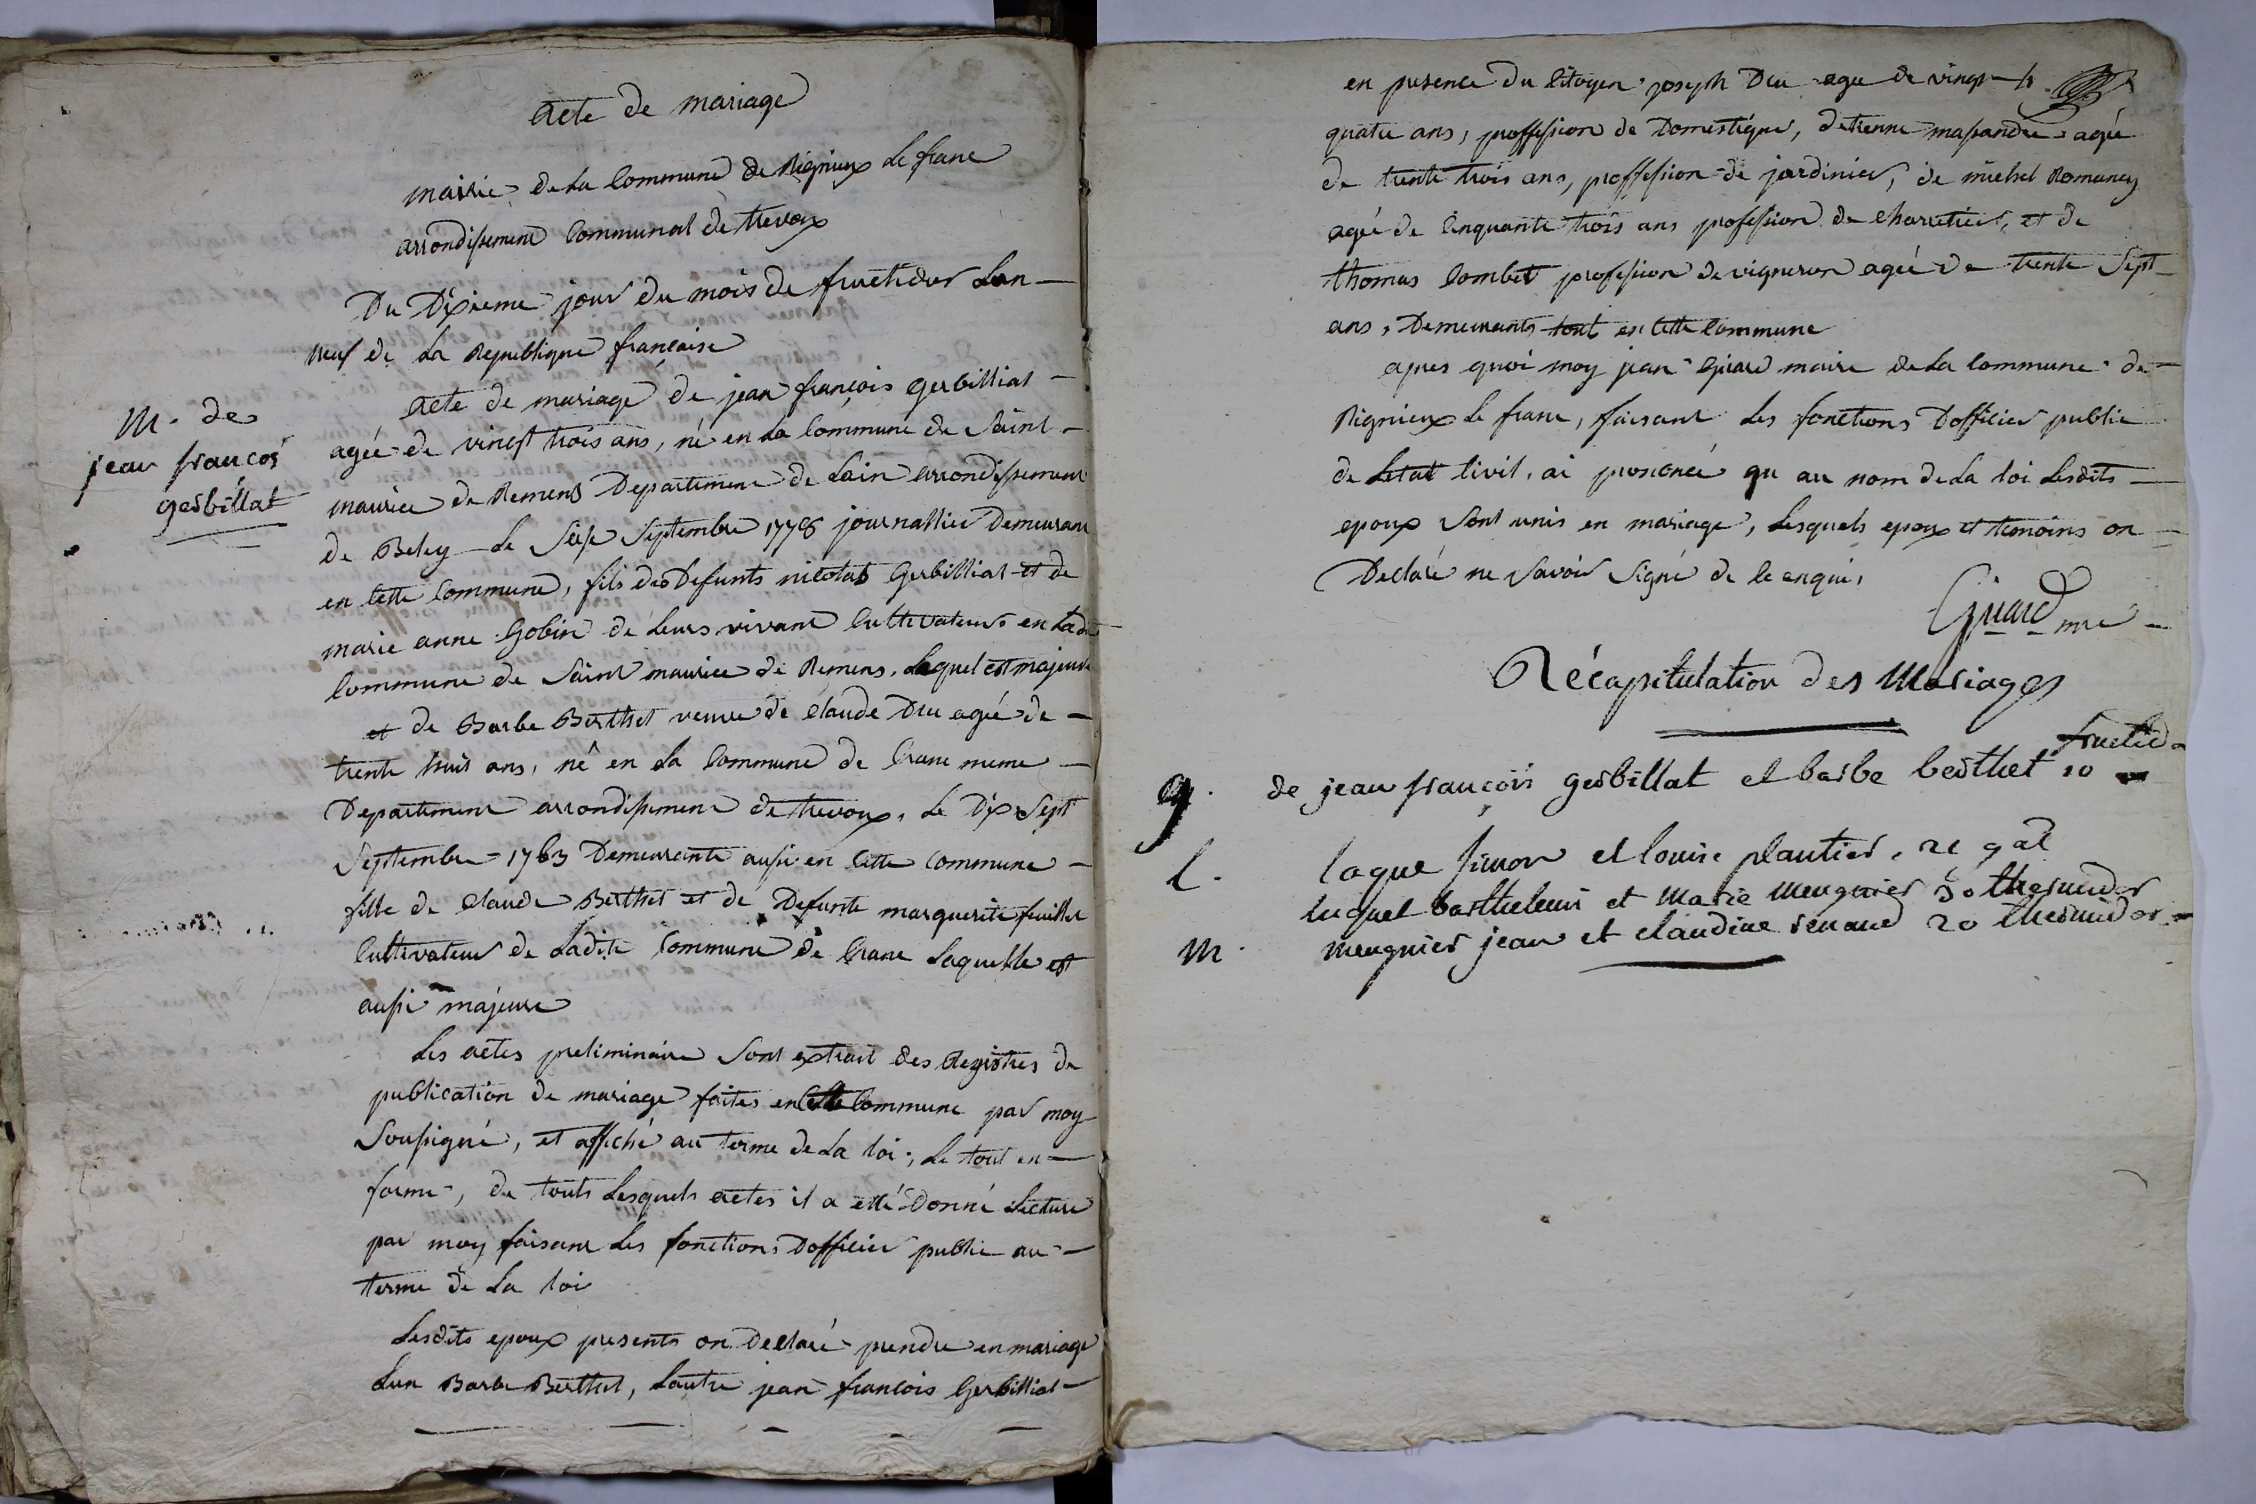 acte de mariage
mairie de La Commune de Rignieux Le franc
arrondissement Communal de trevoux
Du Dixieme jour du mois de fructidor Lan
neuf de La Republique francaise
M. de
jean françois
gerbillat
acte de mariage de jean françois Gerbilliat
agée de vingt trois ans, né en La Commune de Saint
maurice de Remens Departement de Lain arrondissement
de Beley Le Septembre 1778 journallier Demeurant
en Cette Commune, fils des Defunts nicolas Gerbilliat et de
marie anne Gobin de Leurs vivant Cultivateurs en Ladte
Commune de Saint maurice de Remens, Lequel est majeure
et de Barbe Berthet veuve de Claude Dru agée de
trente huit ans, né en La Commune de Crane meme
Departement arrondissement de trevoux, Le Dix Sept
Septembre 1763 Demeurante aussi en Cette Commune
fille de Claude Berthet et de Defunte marguerite feuillet
Cultivateur de Ladite Commune de Crane Laquelle est
aussi majeure
Les actes preliminaire Sont extrait des Registres de
publication de mariage faites en Cette Commune par moy
Soussigné, et affiché au terme de La loi, Le tout en
forme, de touts Lesquels actes il a etté Donné Lecture
par moy faisant Les fonctions Dofficier public au
terme de La loi
Lesdits epoux presents on Declaré prendre en mariage
Lun Barbe Berthet, Lautre jean francois Gerbilliat
en presence du Citoyen joseph Dru agé de vingt
quatre ans, proffession de Domestique, detienne massandre agée
de trente trois ans, proffession de jardinier, de michel Romaney
agée de Cinquante trois ans profession de Charretier, et de
thomas Combet profession de vigneron agée de trente Sept
ans, Demeurants tout en Cette Commune
apres quoi moy jean Guiard maire de La Commune de
Rignieux Le franc, faisant Les fonctions Dofficier public
de Letat Civil, ai prononcée qu au nom de La loi Lesdits
epoux Sont unis en mariage, Lesquels epoux et temoins on
Declaré ne Savoir Signé de ce enquis,
Guiard mre
Récapitulation des Mariages
g. de jean françois gerbillat et barbe berthet 10 fructidor
l. laque simon et louise plantier, 21 gal
luquet barthelemi et Marie Meugnier 30 thermidor
M. Meugnier jean et claudine renaud 20 thermidor